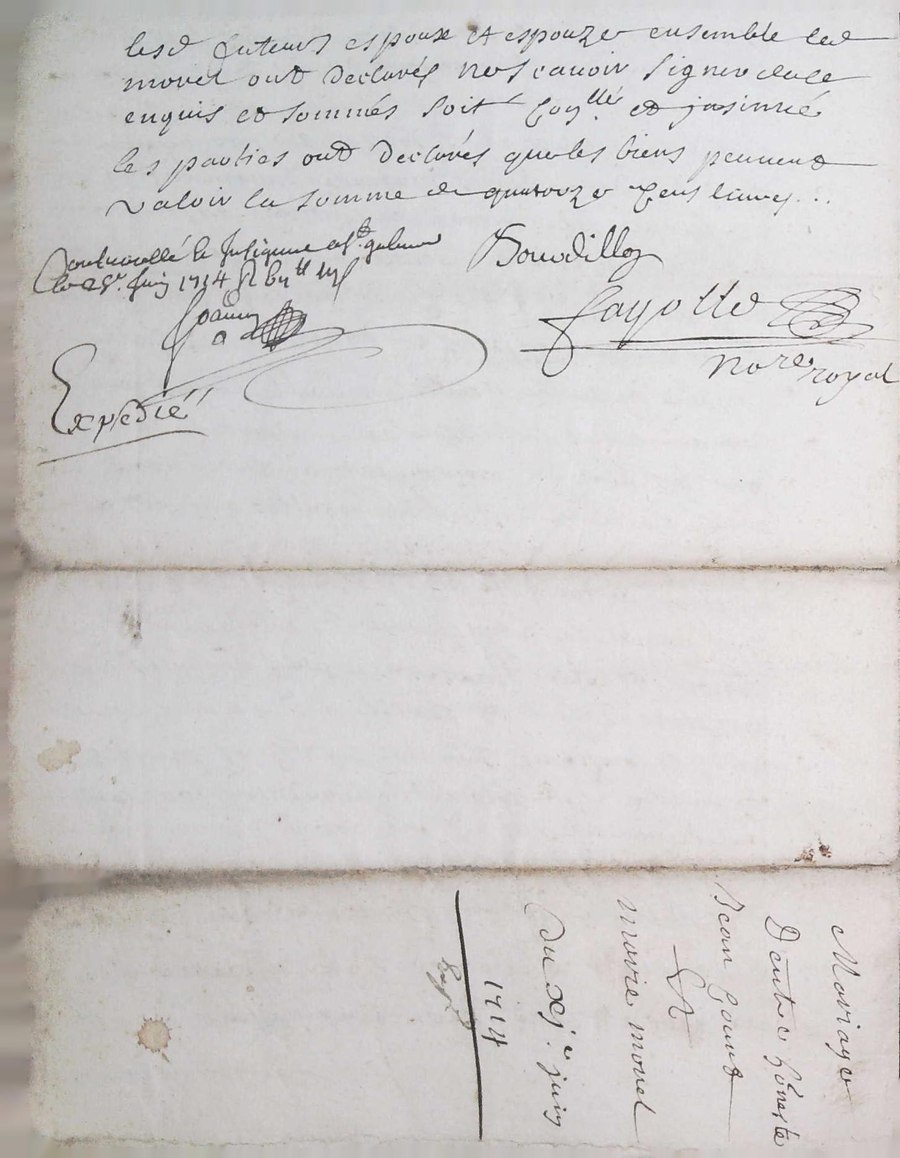 lesd futeurs espoux et espouze ensemble led
morel ont declarés ne scavoir signer de ce
enquis et sommés soit et
les parties ont declarés que les biens peuvent
valoir la somme de quatorze cens livres...
Controuollé le
le juin 1714
Bourdillon
fayolle
nore royal
Expedié
Mariage
D'entre honeste
Jean
Et
Marie morel
Du xje juin
1714